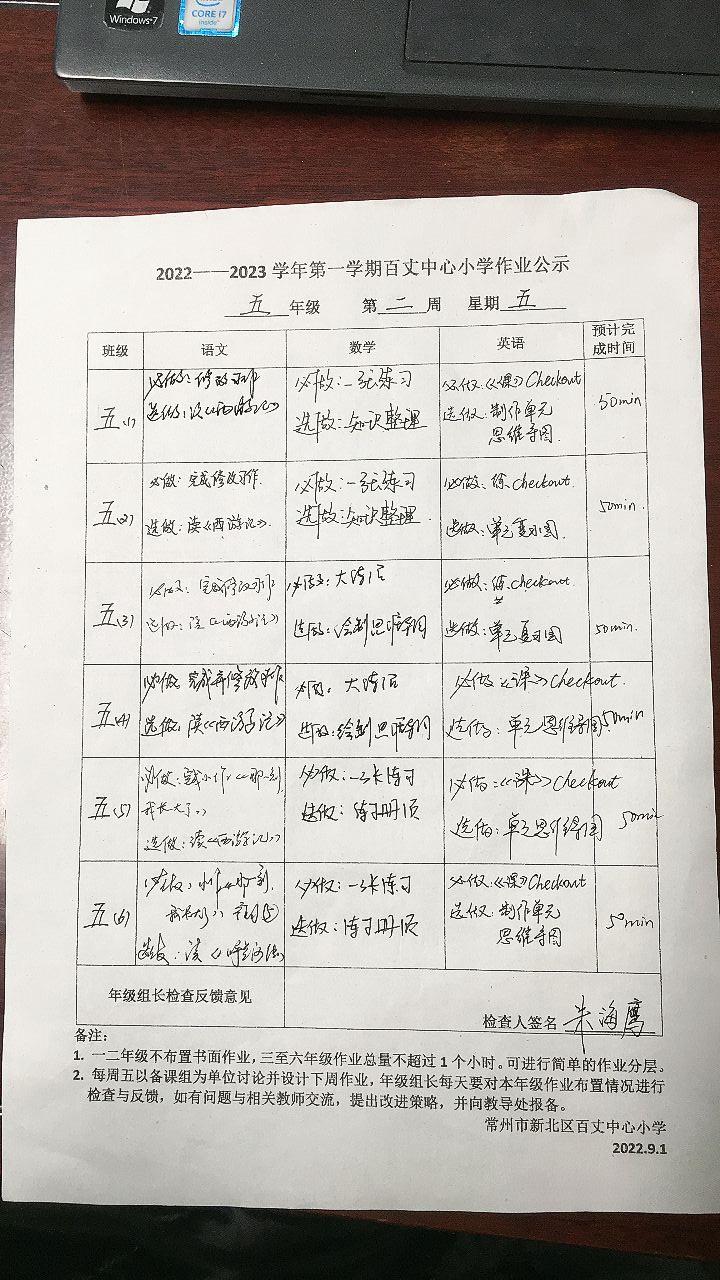 Windows 7
CORE i7
inside
2022——2023 学年第一学期百丈中心小学作业公示
五 年级 第 二 周 星期 五
班级 语文 数学 英语 预计完成时间
五(1)
必做:修改习作
选做:读《西游记》
必做:一张练习
选做:知识整理
必做:《课》Checkout
选做:制作单元
思维导图
50min
五(2)
必做:完成修改习作.
选做:读《西游记》.
必做:一张练习
选做:知识整理.
必做:练checkout.
选做:单元复习图.
50min.
五(3)
必做:完成修改习作
选做:读《西游记》
必做:大练习
选做:绘制思维导图
必做:练checkout.
选做:单元复习图
50min.
五(4)
必做:完成并修改习作
选做:读《西游记》
必做:大练习
选做:绘制思维导图
必做《课》Checkout.
选做:单元思维导图
50min
五(5)
必做:小作《那一刻
我长大了》
选做:读《西游记》
必做:一张练习
选做:练习册1页
必做:《课》Checkout
选做:单元思维导图
50min
五(6)
必做:《那一刻
我长大了》
选做:读《
必做:一张练习
选做:练习册1页
必做:《课》Checkout
选做:制作单元
思维导图
50min
年级组长检查反馈意见
检查人签名 朱海鹰
备注:
1. 一二年级不布置书面作业,三至六年级作业总量不超过 1 个小时。可进行简单的作业分层。
2. 每周五以备课组为单位讨论并设计下周作业,年级组长每天要对本年级作业布置情况进行
检查与反馈,如有问题与相关教师交流,提出改进策略,并向教导处报备。
常州市新北区百丈中心小学
2022.9.1